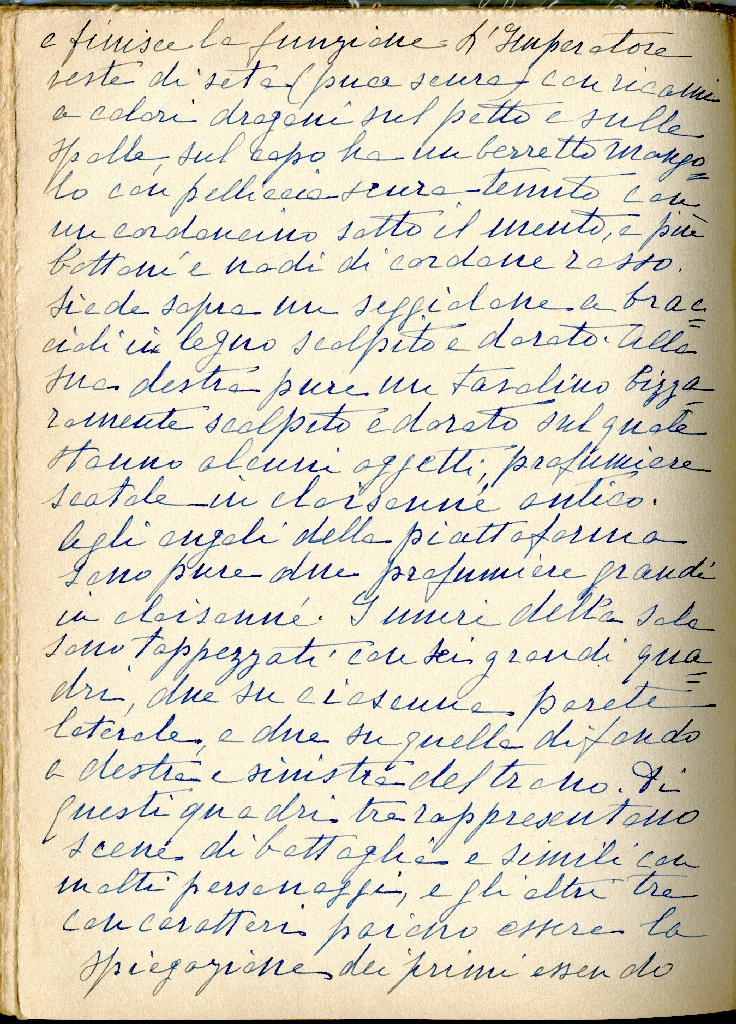 e finisce la funzione = L'Imperatore
veste di seta (puce scura) con ricami
a colori dragoni sul petto e sulle
spalle, sul capo ha un berretto mongo=
lo con pelliccia scura tenuto con
un cordoncino sotto il mento, e più
bottoni e nodi di cordone rosso.
Siede sopra un seggiolone a brac=
cioli in legno scolpito e dorato. Alla
sua destra pure un tavolino bizza=
ramente scolpito e dorato sul quale
stanno alcuni oggetti, profumiere
scatole in cloisonné antico.
Agli angoli della piattaforma
sono pure due profumiere grandi
in cloisonné. I muri della sala
sono tappezzati con sei grandi qua=
dri, due su ciascuna parete
laterale, e due su quella di fondo
a destra e sinistra del trono. Di
questi quadri tre rappresentano
scene di battaglia e simili con
molti personaggi, e gli altri tre
con caratteri paiono essere la
spiegazione dei primi essendo